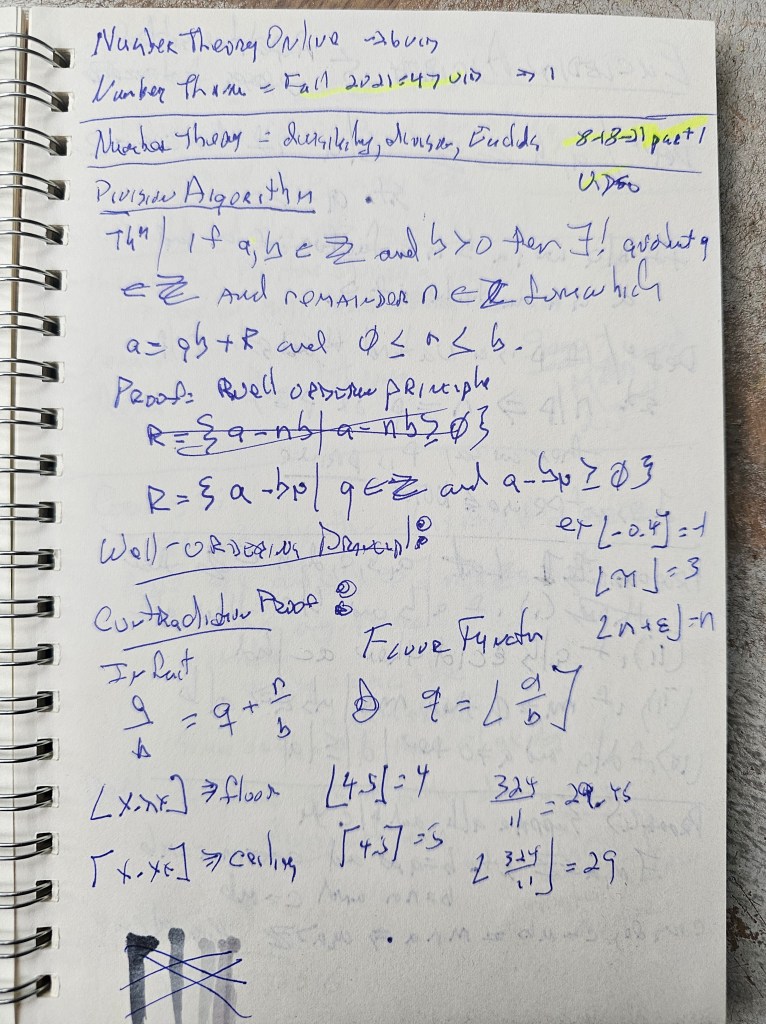 Number Theory Online → 26 vid
Number Theory = Fall 2021 = 47 vid ⇒ 1
Number Theory = divisibility, division, Euclids 8-18-21 part 1
Video
Division Algorithm .
Thm | If a, b ∈ ℤ and b > 0 then ∃! quotient q
∈ ℤ and remainder r ∈ ℤ for which
a = qb + R and 0 ≤ r ≤ b.
Proof: Well ordering principle
R = { a - nb | a - nb ≥ 0 }
R = { a - bn | q ∈ ℤ and a - bn ≥ 0 }
Well-Ordering Principl :
ex ⌊-0.4⌋ = -1
⌊π⌋ = 3
⌊n + ε⌋ = n
Contradiction Proof :
Floor Functn
In fact
a/b = q + r/b q = ⌊a/b⌋
⌊x.xε⌋ ⇒ floor ⌊4.5⌋ = 4 324/11 = 29.45
⌈x.xε⌉ ⇒ ceiling ⌈4.5⌉ = 5 ⌊324/11⌋ = 29